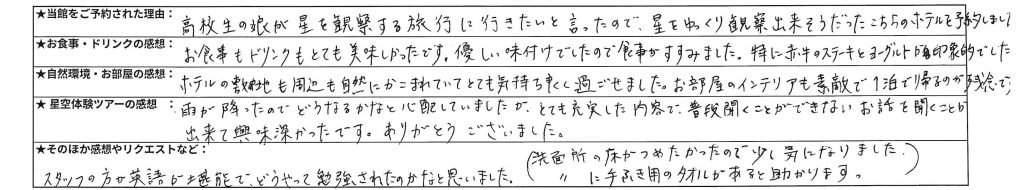 ★当館をご予約された理由：高校生の娘が星を観察する旅行に行きたいと言ったので、星をゆっくり観察出来そうだったこちらのホテルを予約しまし
★お食事・ドリンクの感想：お食事もドリンクもとても美味しかったです。優しい味付けでしたので食事がすすみました。特に赤牛のステーキとヨーグルトが印象的でした
★自然環境・お部屋の感想：ホテルの敷地も周辺も自然にかこまれていてとても気持ち良く過ごせました。お部屋のインテリアも素敵で1泊で帰るのが残念で
★ 星空体験ツアーの感想 ：雨が降ったのでどうなるかなと心配していましたが、とても充実した内容で、普段聞くことができないお話を聞くことが
出来て興味深かったです。ありがとうございました。
★そのほか感想やリクエストなど：
スタッフの方が英語が堪能で、どうやって勉強されたのかなと思いました。
(洗面所の床がつめたかったので少し気になりました。
〃 に手ふき用のタオルがあると助かります。)